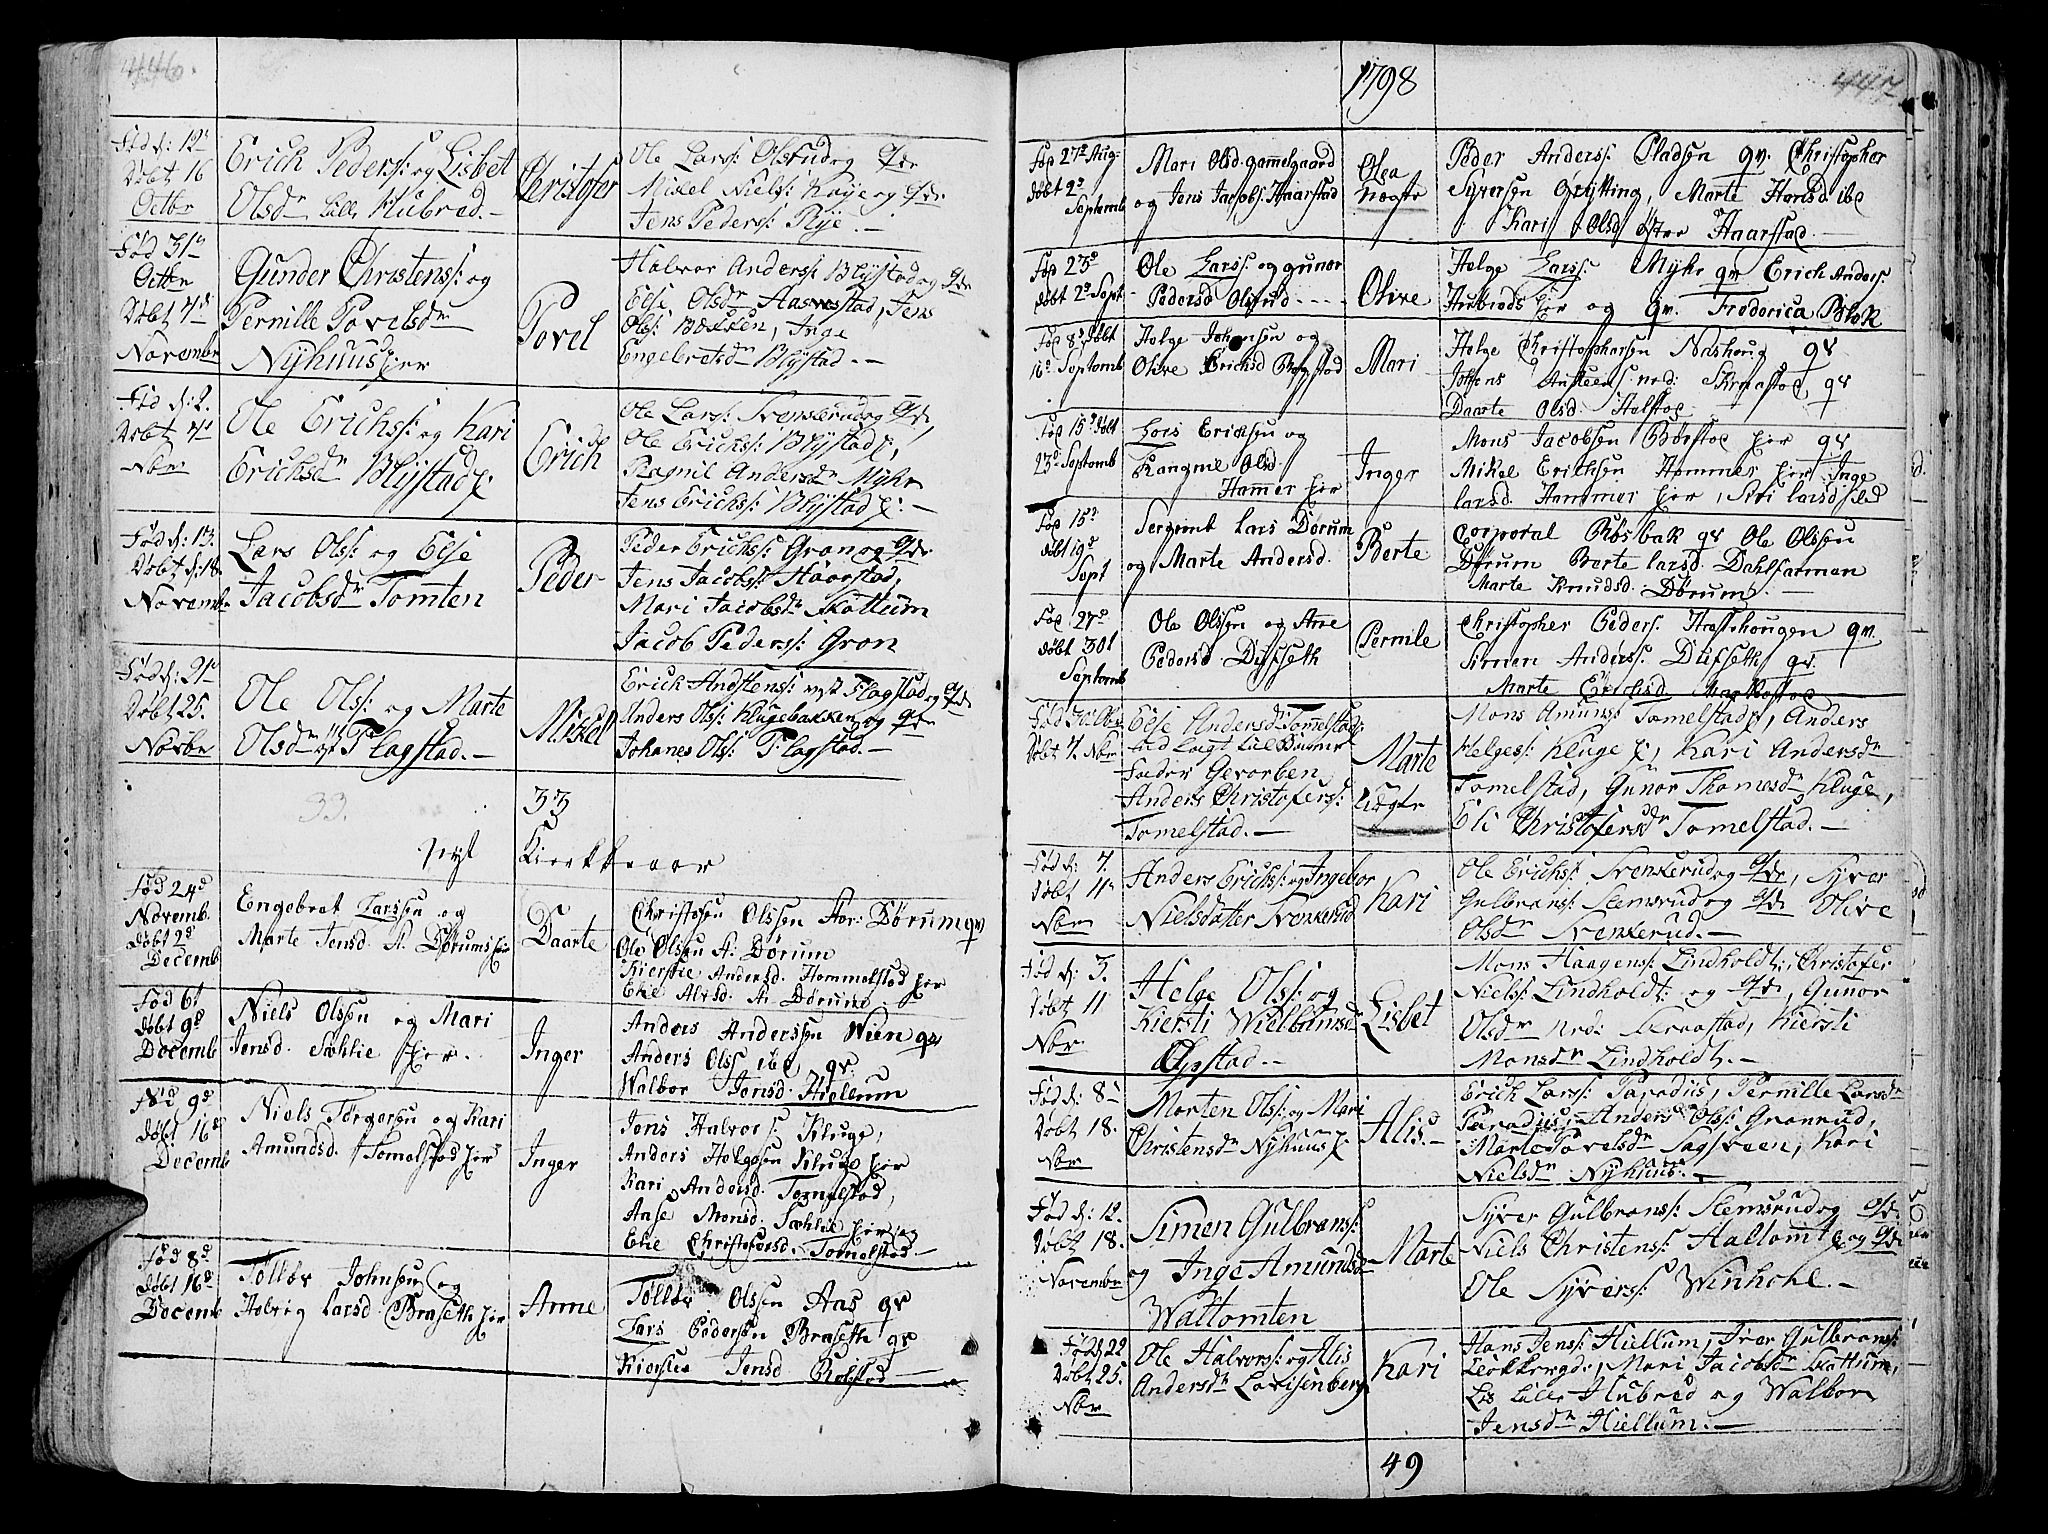 446.
Fød d: 12n
Døbt 16
Octbr
Erich Peders: og Lisbet
Olsdr Lille Hubred.-
Christofer
Ole Lars: Olsrud og qvde
Mikel Niels: Køye og
Jens Peders: Rye.-
Fød 31n
Octbr
Døbt 4de
Novembr
Gunder Christens: og
Pernille Povelsdr
Nyhuus Eier
Povel
Halvor Anders: Blystad og
Else Olsdr Aasvestad, Jens
Ols: Bækken, Inge
Engebretsdr Blystad.-
Fød d: 2.
Døbt 4de
Nbr
Ole Erichs: og Kari
Erichsdr Blystad E:
Erich
Ole Lars: Svenkerud og qvde,
Ole Erichs: Blystad E,
Ragnil Andersdr Myhr
Jens Erichs: Blystad E:-
Fød d: 13.
Døbt d: 18.
Novembr
Lars Ols: og Else
Jacobsdr Tomten
Peder
Peder Erichs: Gron og qvde
Jens Jacobs: Haarstad,
Mari Jacobsdr Skattum
Jacob Peders: Gron
Fød d: 21n
Døbt 25.
Novbr
Ole Ols: og Marte
Olsdr Flagstad.-
Mikkel
Erich Andstens: Flagstad og
Anders Ols: Klugebakken og
Johanes Ols: Flagstad.-
33.
33
Nyt Kierkeaar
Fød 24d
Novemb.
Døbt 2d
Decemb
Engebret Larssen og
Marte Jensd. A. Dørums Eier
Daarte
Christofen Olssen Aar: Dørum qv
Ole Olssen A: Dørum
Kierstie Andersd. Hommelstad Eier
Elie Alvsd. A: Dørum
Fød 6t
døbt 9d
Decemb
Niels Olssen og Mari
Jensd. Sæhlie Eier.
Inger
Anders Anderssen Wien qv
Anders Olss ibd qv.
Walbor Jensd. Hiellum
Fød 9d
døbt 16d
Decemb
Niels Torgersen og Kari
Amundsd. Tomelstad Eier
Inger
Jens Halvors: Kluge,
Anders Helgesen Kluge Eier
Kari Andersd. Tomelstad,
Aase Monsd. Sæhlie Eier og
Elie Christofersd. Tomelstad
Fød 8d
døbt 16d
Decemb
Tollov Johnsen og
Helvig Larsd. Braseth Eier
Anne
Tollov Olssen Aas qv
Lars Pedersen Brasette qv
Kierstie Jensd Rolstad
1798
447
Fød 27d Aug:
døbt 2d
Septemb
Mari Olsd. gammelgaard
og Jens Jacobs. Haarstad
Olea
Uægte
Peder Anders: Pladsen qv. Christopher
Syversen Grytting, Marte Hansd ibd
Kari Olsd Øster Haarstad
Fød 23d
døbt 2d Sept
Ole Larss: og gunor
Pedersd Olsrud
Olive
Helge Larss. Myhr qv Erich Anders:
Hubreds Eier og qv. Frederica Blok
Fød 8d døbt
16d Septemb
Helge Johansen og
Olive Erichsd Bagstad
Mari
Helge Christophersen Nashoug qv
Johans Ansteens: ned: Skraastad qv
Daarte Olsd Halstad
Fød 15d døbt
23d Septemb
Lars Erichsen og
Rangnil Olsd.
Hammer Eier
Inger
Mons Jacobsen Børstad Eier qv
Mikel Erichsen Hammer Eier Inge
Larsd. Hammer Eier, Siri Larsd
Fød 15d
døbt 19d
Sept
Sergeant Lars Dørum
og Marte Andersd.
Berte
Corporal Røsbak qv Ole Olssen
Dørum Berte Larsd. Dahlfarmen
Marte Knudsd. Dørum.
Fød 27d
døbt 30t
Septemb
Ole Olssen og Anne
Pedersd Dyfseth
Pernile
Christopher Peders. Hæstehougen qv.
Simen Anders: Diefseth qv.
Marte Erichsd
Døbt 4 Nbr
Else Andersdr Tomelstad:
Fader Gevorben
Anders Christofers:
Tomelstad.-
Marte
Uægte
Mons Amuns: Tomelstad E, Anders
Helges: Kluge E, Kari Andersdr
Tomelstad, Gunor Thomesdr Kluge,
Eli Christofersdr Tomelstad.-
Fød d: 7.
Døbt 11n
Nbr
Anders Erichs: og Ingebor
Nielsdatter Svenkerud
Kari
Ole Erichs: Svenkerud og qvde, Syver
Gulbrans: Stensrud og qvde Olive
Olsdr Svenkerud.-
Fød d: 3.
Døbt 11
Nbr
Helge Ols: og
Kiersti Wielbransdr
Opstad.-
Lisbet
Mons Haagens: Lindholdt, Christofer
Niels: Lindholdt: og qvde, Gunor
Olsdr Ned: Skraastad, Kiersti
Monsdr Lindholdt.-
Fød d: 8n
Døbt 18.
Nbr
Morten Ols: og Mari
Christensdr Nyhuus E
Alis.-
Erich Lars: Paradiis, Pernille Larsdr
Paradiis, Anders Ols: Granrud,
Marte Povelsdr Sagsveen, Kari
Nielsdr Nyhuus.-
Fød d: 12.
Døbt 18.
Novembr
Simen Gulbrans:
og Inge Amundsdr
Waltomten
Marte
Syver Gulbrans: Stensrud og qvde
Niels Christens: Haltomt E og qvde
Ole Syvers: Winhohl.-
Fød d: 22
Døbt 25.
Nbr
Ole Halvors: og Alis
Andersdr Lovisenberg
Kari
Hans Jens: Hiellum, Iver Gulbrans:
Mari Jacobsdr Skattum,
Lis Lille Hubred og Walbor
Jensdr Hiellum.-
49